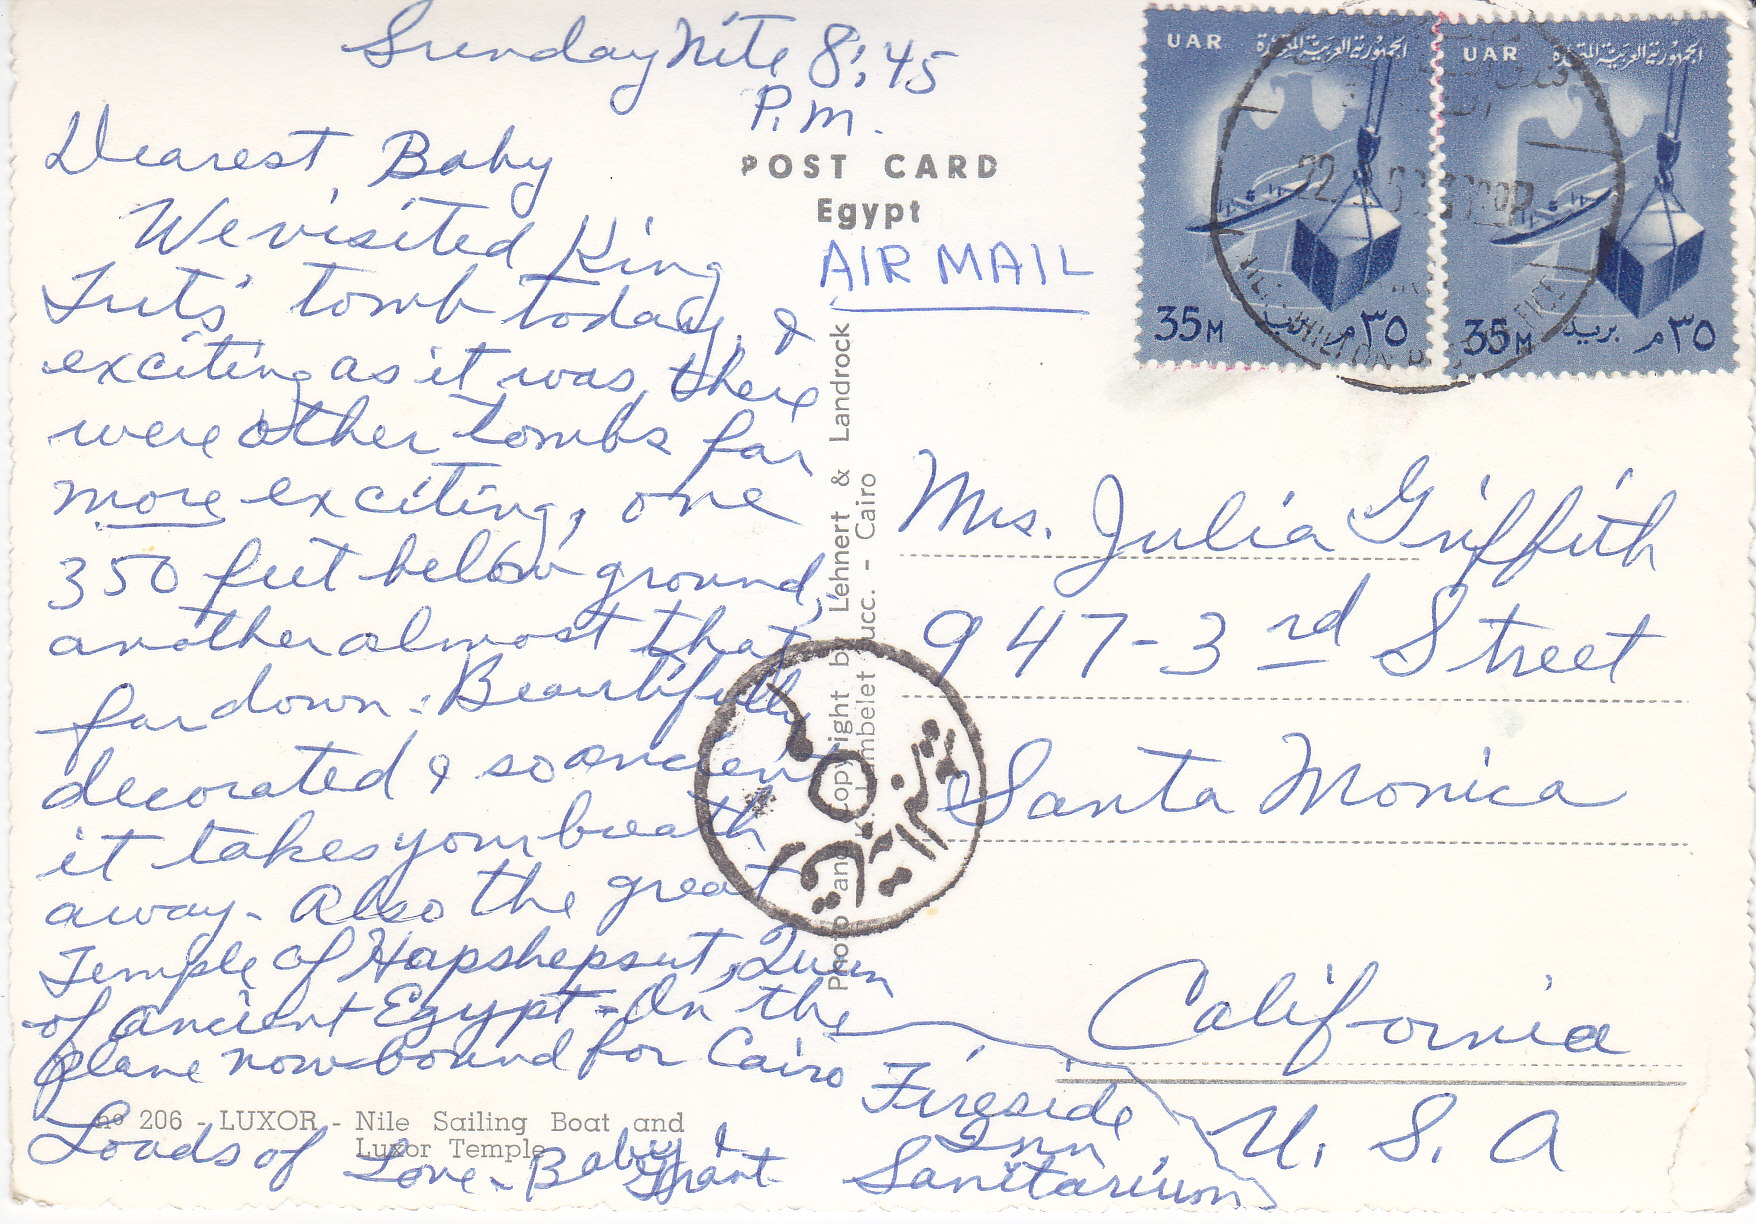 Sunday Nite 8:45
P.M.
Dearest Baby
We visited King
Tuts' tomb today, &
exciting as it was, there
were other tombs far
more exciting, one
350 feet below ground,
another almost that
far down. Beautifully
decorated & so ancient
it takes your breath
away. Also the great
Temple of Hapshepsut, Queen
of ancient Egypt - On the
plane now bound for Cairo
Loads of Love - Baby &
Grant
nº 206 - LUXOR - Nile Sailing Boat and
Luxor Temple
POST CARD
Egypt
AIR MAIL
Photo and Copyright by Lehnert & Landrock
K. Lambelet succ. - Cairo
UAR الجمهورية العربية المتحدة
35M بريد ٣٥م
UAR الجمهورية العربية المتحدة
35M بريد ٣٥م
22
HILTON
Mrs. Julia Griffith
947-3rd Street
Santa Monica
California
U. S. A
Fireside
Inn
Sanitarium